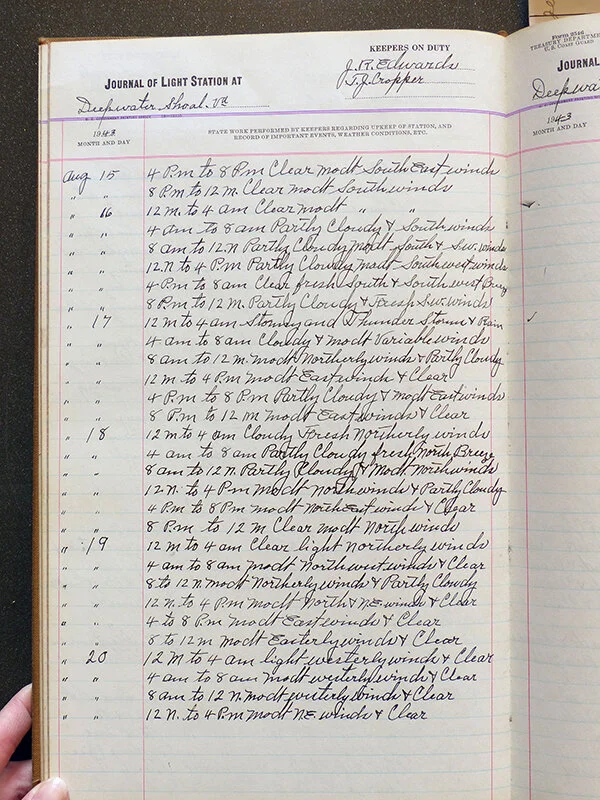 KEEPERS ON DUTY
J. R. Edwards
T. J. Cropper
JOURNAL OF LIGHT STATION AT
Deepwater Shoal. Va
1943
MONTH AND DAY
STATE WORK PERFORMED BY KEEPERS REGARDING UPKEEP OF STATION, AND
RECORD OF IMPORTANT EVENTS, WEATHER CONDITIONS, ETC.
Aug 15 4 P.m to 8 P.m Clear modt South East winds
" " 8 P.m to 12 m. Clear modt South winds
" 16 12 m. to 4 am Clear modt " "
" " 4 am to 8 am Partly Cloudy & South winds
" " 8 am to 12.N Partly Cloudy modt South & S.w. winds
" " 12.N to 4 P.m Partly Cloudy modt Southwest winds
" " 4 P.m to 8 am Clear fresh South & South west Breeze
" " 8 P.m to 12 M. Partly Cloudy & Fresh S.w. winds
" 17 12 M to 4 am Stormy and Thunder Storm & Rain
" " 4 am to 8 am Cloudy & modt Variable winds
" " 8 am to 12 m. modt Northerly winds & Partly Cloudy
" " 12 m to 4 P.m modt East winds & Clear
" " 4 P.m to 8 P.m Partly Cloudy & modt East winds
" " 8 P.m to 12 M modt East winds & Clear
" 18 12 m to 4 am Cloudy Fresh Northerly winds
" " 4 am to 8 am Partly Cloudy fresh North Breeze
" " 8 am to 12 N. Partly Cloudy & Modt North winds
" " 12.N. to 4 P.m Modt North winds & Partly Cloudy
" " 4 P.m to 8 P.m modt North East winds & Clear
" " 8 P.m to 12 M Clear modt North winds
" 19 12 M to 4 am Clear light Northerly winds
" " 4 am to 8 am modt North west winds & Clear
" " 8 to 12 N. modt Northerly winds & Partly Cloudy
" " 12 N. to 4 P.m modt North & N.E winds & Clear
" " 4 to 8 P.m modt East winds & Clear
" " 8 to 12 m modt Easterly winds & Clear
" 20 12 M to 4 am light westerly winds & Clear
" " 4 am to 8 am modt westerly winds & Clear
" " 8 am to 12 N. modt westerly winds & Clear
" " 12 N. to 4 P.m modt N.E winds & Clear
Form 2546
TREASURY DEPARTME
U. S. COAST GUARD
JOURNAL
Deepwat
1943
MONTH AND DAY